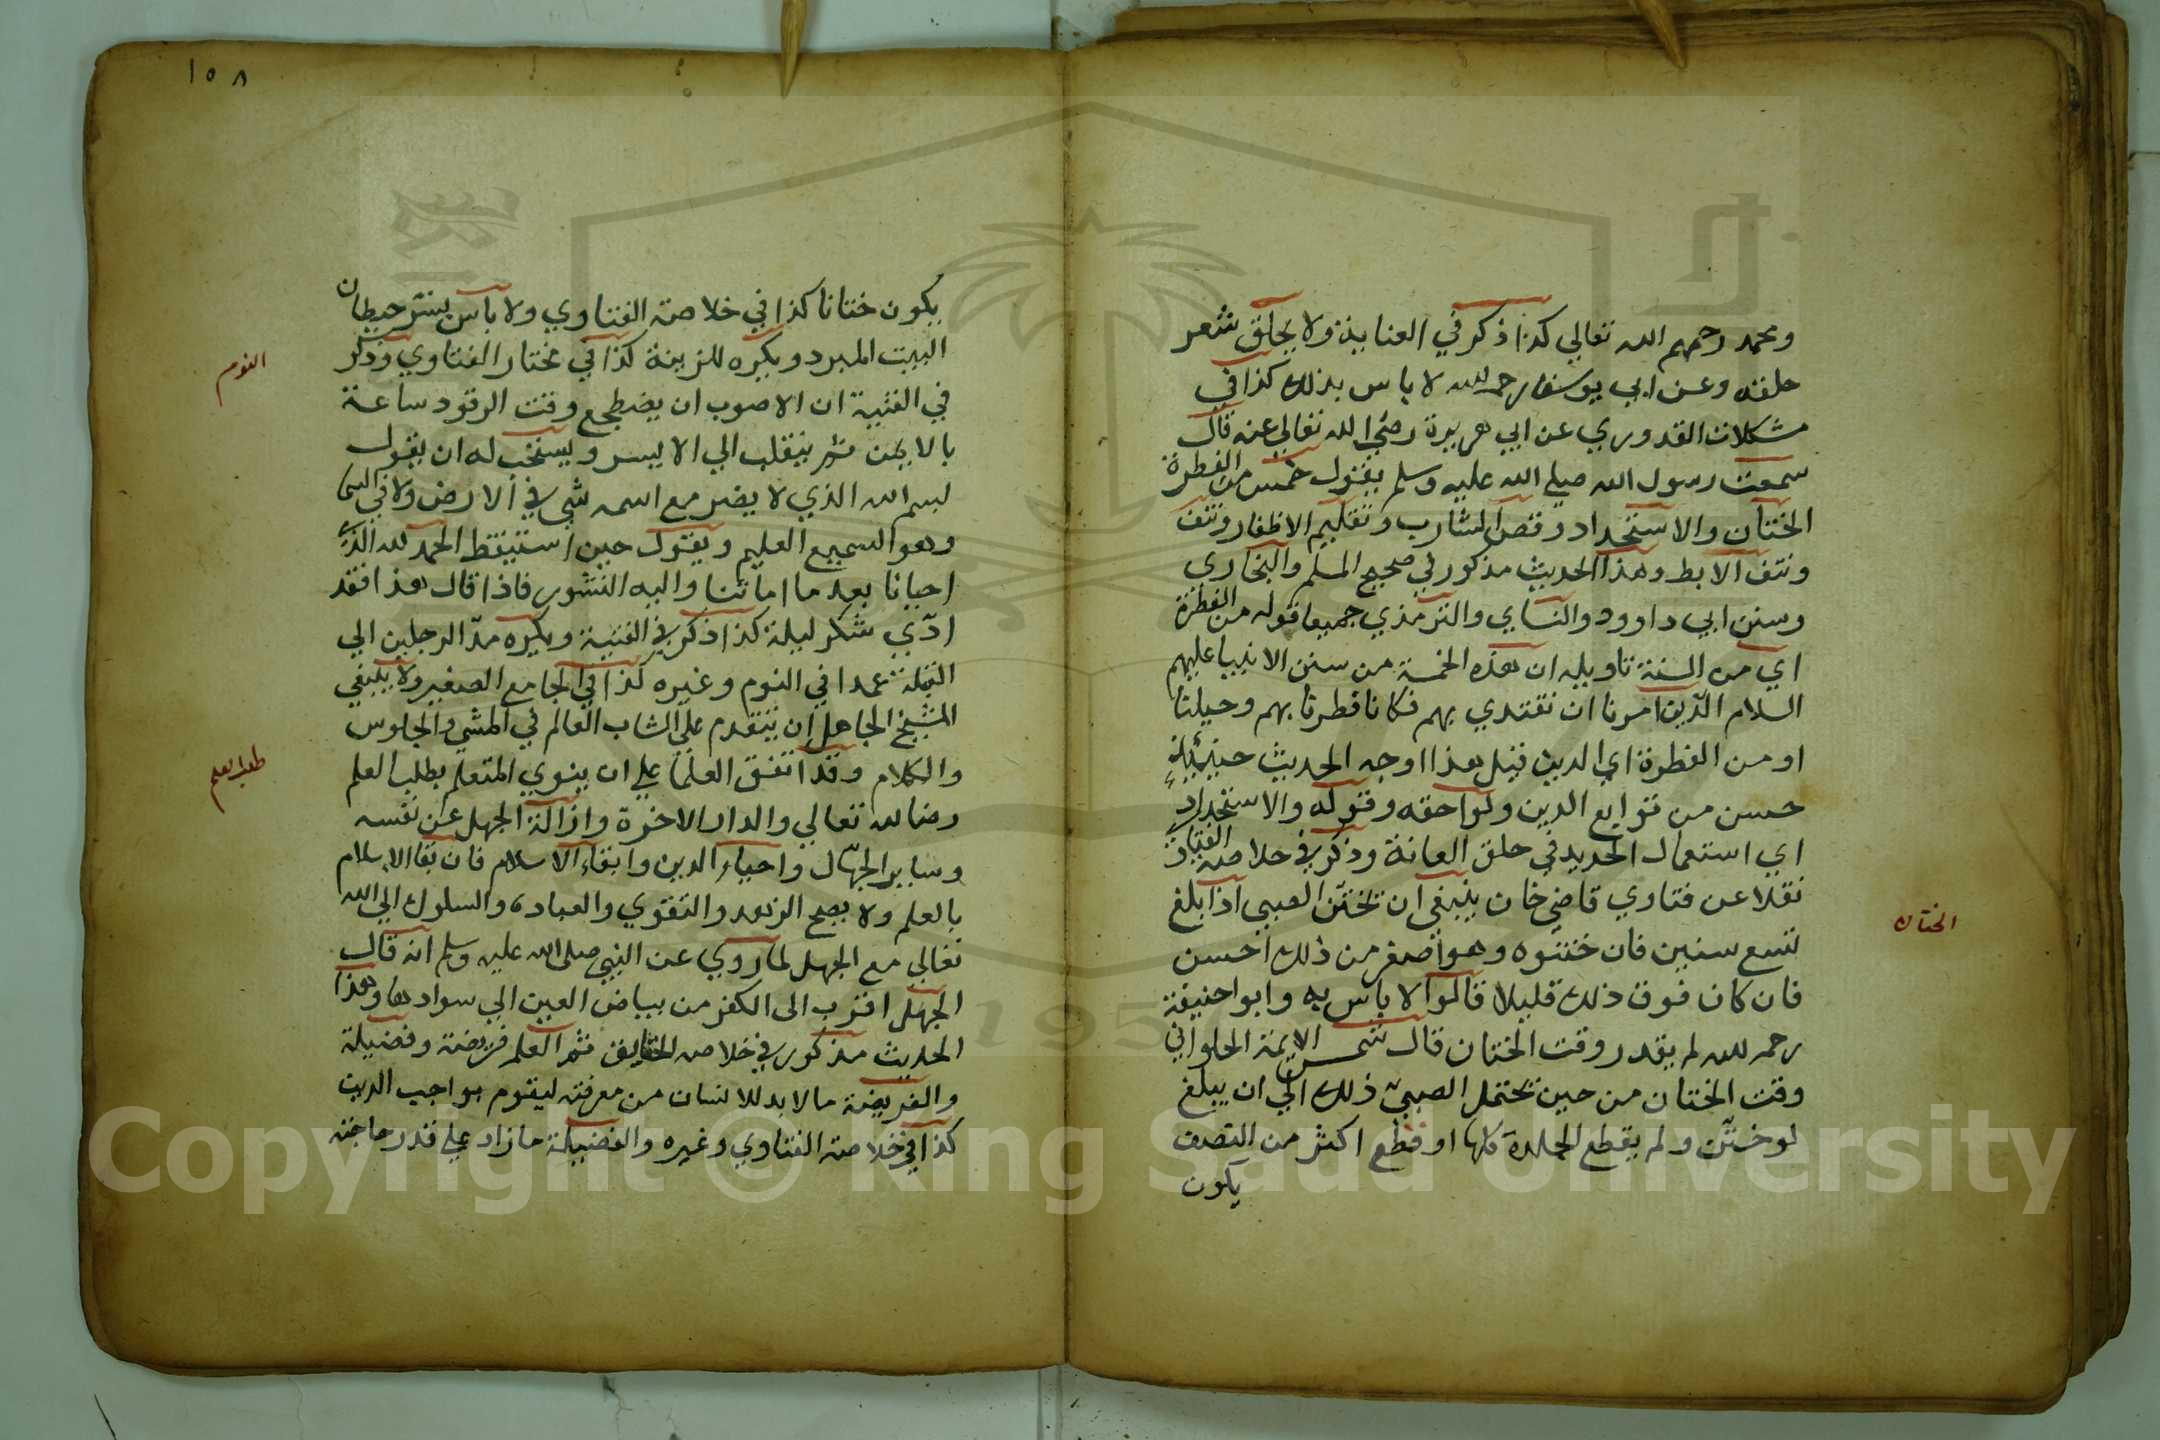 ومحمد رحمهم الله تعالي كذا ذكر في العنابية ولا يحلق شعر
حلقه وعن ابي يوسف رحمه الله لا باس بذلك كذا في
مشكلات القدوري عن ابي هريرة رضي الله تعالي عنه قال
سمعت رسول الله صلي الله عليه وسلم يقول خمس من الفطرة
الختان والاستحداد وقص الشارب وتقليم الاظفار ونتف
ونتف الابط وهذا الحديث مذكور في صحيح المسلم والبخاري
وسنن ابي داوود والنساي والترمذي جميعا قوله من الفطرة
اي من السنة تاويله ان هذه الخمسة من سنن الانبيا عليهم
السلام الذين امرنا ان نقتدي بهم فكانا فطرنا بهم وحيلنا
او من الفطرة اي الدين قيل هذا اوجه الحديث حينئذ
حسن من توابع الدين ولواحقه وقوله والاستحداد
اي استعمال الحديد في حلق العانة وذكر في خلاصة الفتاوي
نقلا عن فتاوي قاضي خان ينبغي ان تختتن الصبي اذا بلغ
تسع سنين فان ختنوه وهو اصغر من ذلك احسن
فان كان فوق ذلك قليلا قالوا لا باس به وابو حنيفة
رحمه الله لم يقدر وقت الختان قال شمس الايمة الحلواني
وقت الختان من حين تحتمل الصبي ذلك الي ان يبلغ
لو ختن ولم يقطع الجلدة كلها او قطع اكثر من النصف
يكون
الختان
١٥٨
يكون ختانا كذا في خلاصة الفتاوي ولا باس بنشر حيطان
البيت المبرد ويكره للزينة كذا في مختار الفتاوي وذكر
في القنية ان الاصوب ان يضطجع وقت الرقود ساعة
بالايمن ثم ينقلب الي الايسر ويستحب له ان يقول
بسم الله الذي لا يضر مع اسمه شي في الارض ولا في السما
وهو السميع العليم ويقول حين استيقظ الحمد لله الذي
احيانا بعد ما اماتنا واليه النشور فاذا قال هذا فقد
ادّي شكر ليلة كذا ذكر في القنية ويكره مدّ الرجلين الي
القبلة عمدا في النوم وغيره كذا في الجامع الصغير ولا ينبغي
الشيخ الجاهل ان يتقدم علي الشاب العالم في المشي والجلوس
والكلام وقد اتفق العلما علي ان ينوي المتعلم بطلب العلم
رضا لله تعالي والدار الاخرة وازالة الجهل عن نفسه
وساير الجهّال واحياء الدين وابقاء الاسلام فان بقا الاسلام
بالعلم ولا يصح الزهد والتقوي والعبادة والسلوك الي الله
تعالي مع الجهل لما روي عن النبي صلى الله عليه وسلم انه قال
الجهل اقرب الى الكفر من بياض العين الي سوادها وهذا
الحديث مذكور في خلاصه الحقايق ثم العلم فريضة وفضيلة
والفريضة ما لا بد للانسان من معرفته ليقوم بواجب الدين
كذا في خلاصة الفتاوي وغيره والفضيلة ما زاد علي قدر حاجته
النوم
طلب العلم
Copyright © King Saud University